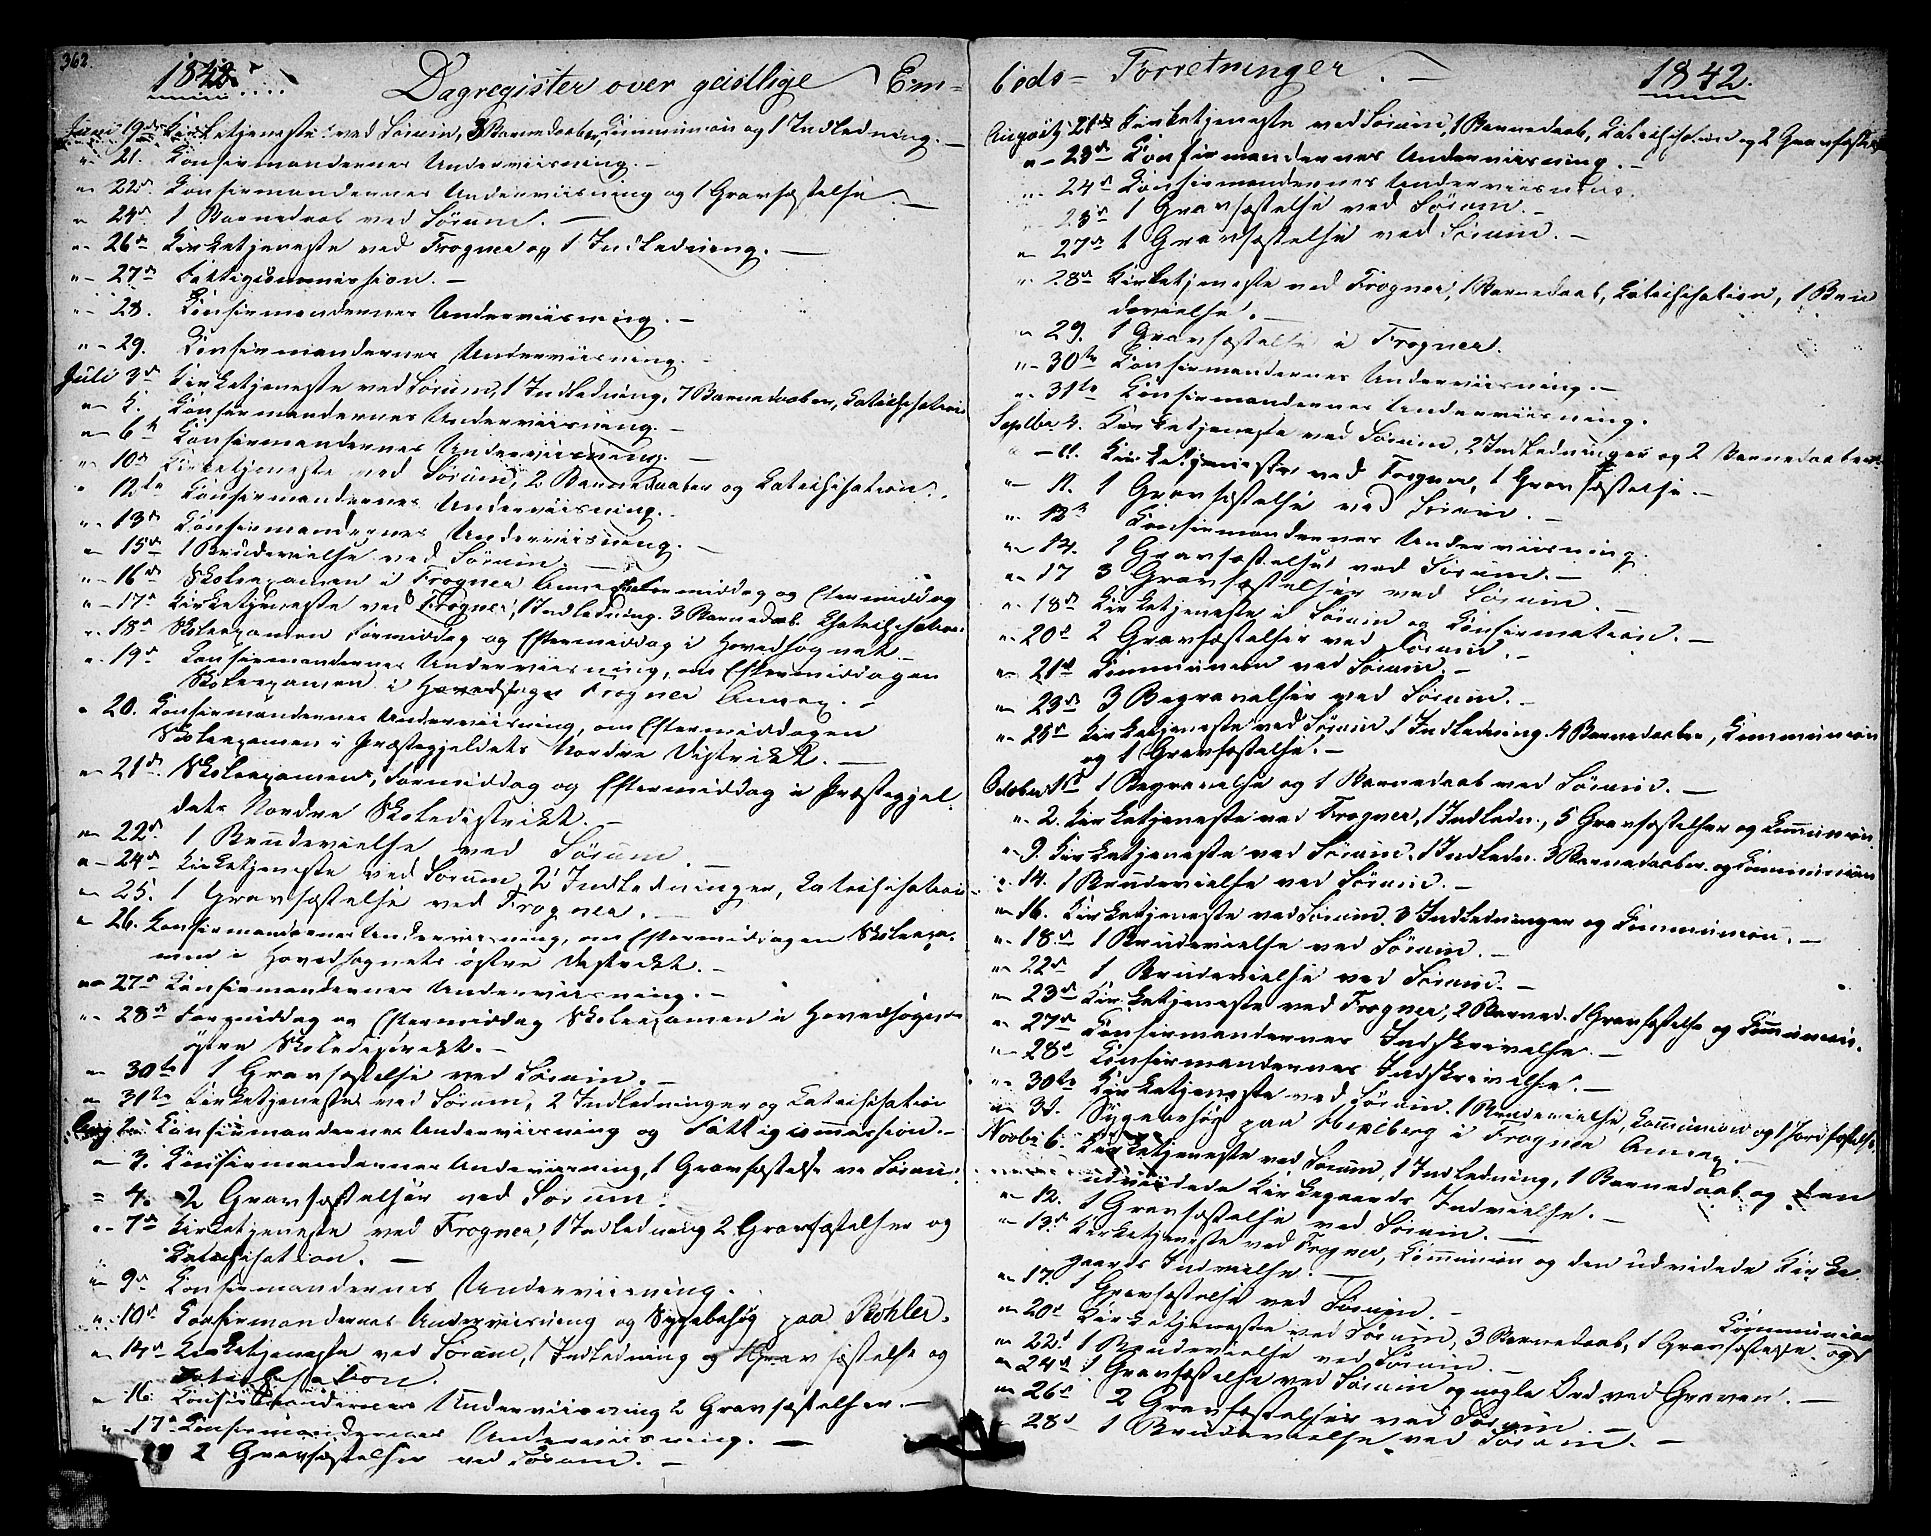 362
1842.
Dagregister over geistlige Em-
Juni 19de Kirketjeneste ved Sørum, 3 Barnedaab, Communion og 1 Indledning. -
" 21. Konfirmandernes Underviisning. -
" 22d. Konfirmandernes Underviisning og 1 Gravfæstelse. -
" 24d. 1 Barnedaab ved Sørum. -
" 26d Kirketjeneste ved Frogner og 1 Indledning. -
" 27d Fattigcommission. -
" 28. Konfirmandernes Underviisning. -
" 29. Konfirmandernes Underviisning.
Juli 3d Kirketjeneste ved Sørum, 1 Indledning, 7 Barnedaaber, Catechisation
" 5. Konfirmandernes Underviisning. -
" 6t Konfirmandernes Underviisning. -
" 10d Kirketjeneste ved Sørum, 2 Barnedaaber og Catechisation.
" 12te Konfirmandernes Underviisning. -
" 13d Konfirmandernes Underviisning. -
" 15d 1 Brudevielse ved Sørum. -
" 16d Skoleexamen i Frogner Annex Formiddag og Eftermiddag
" 17d Kirketjeneste ved Frogner, 1 Indledning. 3 Barnedaab Chatechisation
" 18d Skoleexamen Formiddag og Eftermiddag i Hovedsognet. -
" 19d Konfirmandernes Underviisning, om Eftermiddagen
Skoleexamen i Frogner Annex. -
" 20. Konfirmandernes Underviisning, om Eftermiddagen
Skoleexamen i Præstegjeldets Nordre Distrikt. -
" 21d. Skoleexamen, Formiddag og Eftermiddag i Præstegjel-
dets Nordre Skoledistrikt. -
" 22d. 1 Brudevielse ved Sørum. -
" 24d Kirketjeneste ved Sørum 2 Indledninger, Catechisation
" 25. 1 Gravfæstelse ved Frogner. -
" 26. Konfirmandernes Underviisning, om Eftermiddagen Skoleexa-
men i Hovedsognets østre Distrikt. -
" 27d Konfirmandernes Underviisning. -
" 28d Formiddag og Eftermiddag Skoleexamen i Hovedsognets
østre Skoledistrikt. -
" 30te 1 Gravfæstelse ved Sørum. -
" 31te Kirketjeneste ved Sørum, 2 Indledninger og Catechisation
Aug 2. Konfirmandernes Underviisning og Fattigcommission. -
" 3. Konfirmandernes Underviisning, 1 Gravfæstelse ve Sørum.
" 4. 2 Gravfæstelser ved Sørum.
" 7d Kirketjeneste ved Frogner, 1 Indledning 2 Gravfæstelser og
Catechisation. -
" 9d Konfirmandernes Underviisning.
" 10d Konfirmandernes Underviisning og Sygebesøg paa Røhler.
" 14d Kirketjeneste ved Sørum, 1 Indledning og 1 Gravfæstelse og
Catechisation.
" 16 Konfirmandernes Underviisning 2 Gravfæstelser. -
" 17d Konfirmandernes Underviisning. -
2 Gravfæstelser ved Sørum. -
beds- Forretninger. -
1842.
August 21d Kirketjeneste ved Sørum, 1 Barnedaab, Catechisation og 2 Gravfæstelser
" 23d Konfirmandernes Underviisning. -
" 24d Konfirmandernes Underviisning.
1 Gravfæstelse ved Sørum. -
" 27d 1 Gravfæstelse ved Sørum. -
" 28d Kirketjeneste ved Frogner, 1 Barnedaab, Catechisation, 1 Bru
devielse. -
" 29. 1 Gravfæstelse i Frogner.
" 30te Konfirmandernes Underviisning. -
" 31te Konfirmandernes Underviisning.
Septbr 4. Kirketjeneste ved Sørum, 2 Indledninger og 2 Barnedaaber.
" 11. Kirketjeneste ved Frogner, 1 Gravfæstelse. -
1 Gravfæstelse ved Sørum. -
Konfirmandernes Underviisning.
" 14. 1 Gravfæstelse ved Sørum. -
" 17 3 Gravfæstelser ved Sørum. -
" 18d Kirketjeneste i Sørum og Konfirmation. -
" 20d 2 Gravfæstelser ved Sørum. -
" 21d Communion ved Sørum. -
" 23d 3 Begravelser ved Sørum. -
" 25d Kirketjeneste ved Sørum 1 Indledning. 4 Barnedaaber, Communion
og 1 Gravfæstelse. -
October 1st 1 Begravelse og 1 Barnedaab ved Sørum. -
" 2. Kirketjeneste ved Frogner, 1 Indledn., 5 Gravfæstelser og Communion.
" 9. Kirketjeneste ved Sørum, 1 Indledn. 3 Barnedaaber og Communion
" 14. 1 Brudevielse ved Sørum. -
" 16. Kirketjeneste ved Sørum. 3 Indledninger og Communion. -
" 18d 1 Brudevielse ved Sørum. -
" 22d 1 Brudevielse ved Sørum. -
" 23d Kirketjeneste ved Frogner, 2 Barned. 1 Gravfæstelse og Communion.
" 27d Konfirmandernes Indskrivelse. -
" 28d Konfirmandernes Indskrivelse. -
" 30te Kirketjeneste ved Sørum. 1 Brudevielse, Communion og 1 Jordfæstelse
" 31. Sygebesøg paa i Frogner Annex. -
Novbr 6. Kirketjeneste ved Sørum, 1 Indledning, 1 Barnedaab og den
udvidede Kirkegaards Indvielse. -
" 12. 1 Gravfæstelse ved Sørum. -
" 13d Kirketjeneste ved Frogner, Communion og den udvidede Kirke
gaards Indvielse. -
" 17. 1 Gravfæstelse ved Sørum. -
" 20d Kirketjeneste ved Sørum, 3 Barnedaab, 1 Gravfæstelse og Communion
" 22d 1 Brudevielse ved Sørum. -
" 24d 1 Gravfæstelse ved Sørum og nogle Ord ved Graven. -
" 26d 2 Gravfæstelser ved Sørum. -
" 28d 1 Brudevielse ved Sørum. -